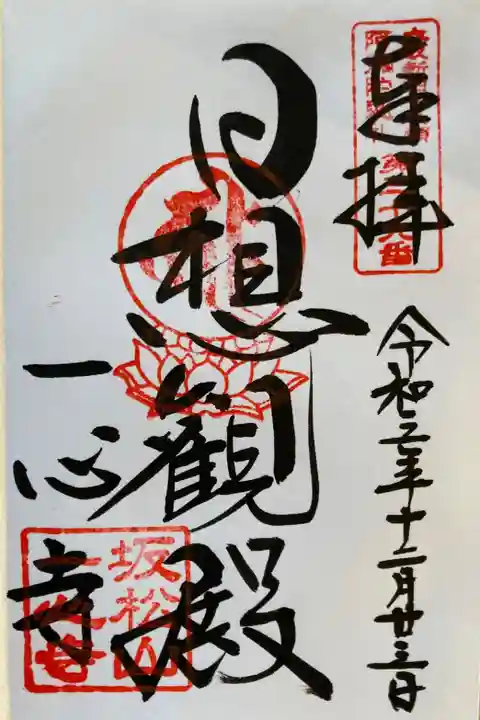 奉拝
令和二年十二月廿三日
日想觀殿
一心寺
坂松山
一心寺